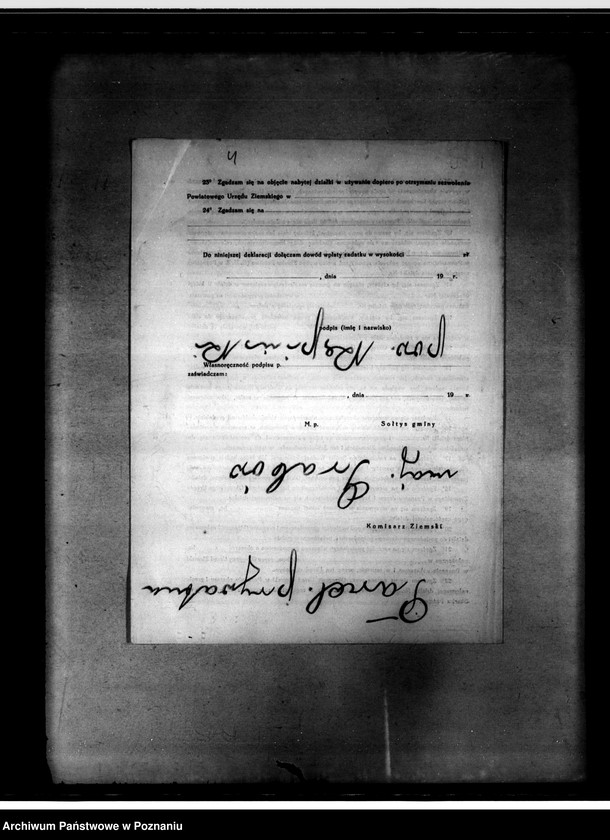 4
23° Zgadzam się na objęcie nabytej działki w używanie dopiero po otrzymaniu zezwolenia
Powiatowego Urzędu Ziemskiego w
24° Zgadzam się na
Do niniejszej deklaracji dołączam dowód wpłaty zadatku w wysokości zł
, dnia 19 r.
podpis (imię i nazwisko)
Własnoręczność podpisu p.
zaświadczam:
, dnia 19 r.
M. p. Sołtys gminy
Komisarz Ziemski
Parcel. prywatna
maj. Grabów
pow. Kępiński
Archiwum Państwowe w Poznaniu